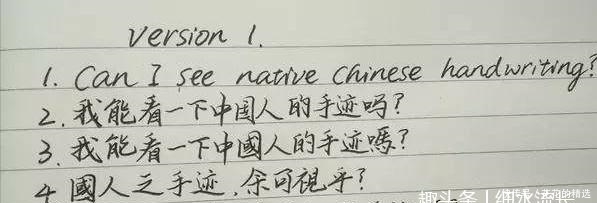 Version 1.
1. Can I see native Chinese handwriting?
2. 我能看一下中国人的手迹吗?
3. 我能看一下中國人的手迹嗎?
4 國人之手迹,余可視乎?
趣头条